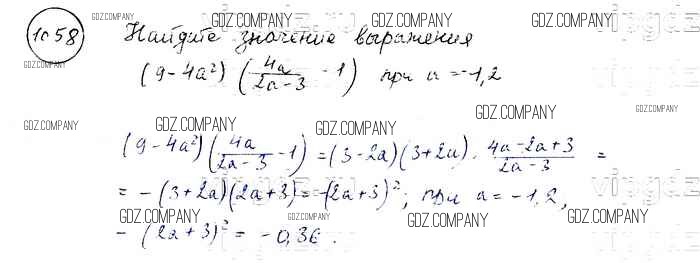 1058 Найдите значение выражения
(9-4a²)(4a/2a-3 -1) при a=-1,2
(9-4a²)(4a/2a-3 -1)=(3-2a)(3+2a)·4a-2a+3/2a-3 =
=-(3+2a)(2a+3)=-(2a+3)²; при a=-1,2,
-(2a+3)²=-0,36.
GDZ.COMPANY
GDZ.COMPANY
GDZ.COMPANY
GDZ.COMPANY
GDZ.COMPANY
GDZ.COMPANY
GDZ.COMPANY
GDZ.COMPANY
GDZ.COMPANY
GDZ.COMPANY
GDZ.COMPANY
GDZ.COMPANY
GDZ.COMPANY